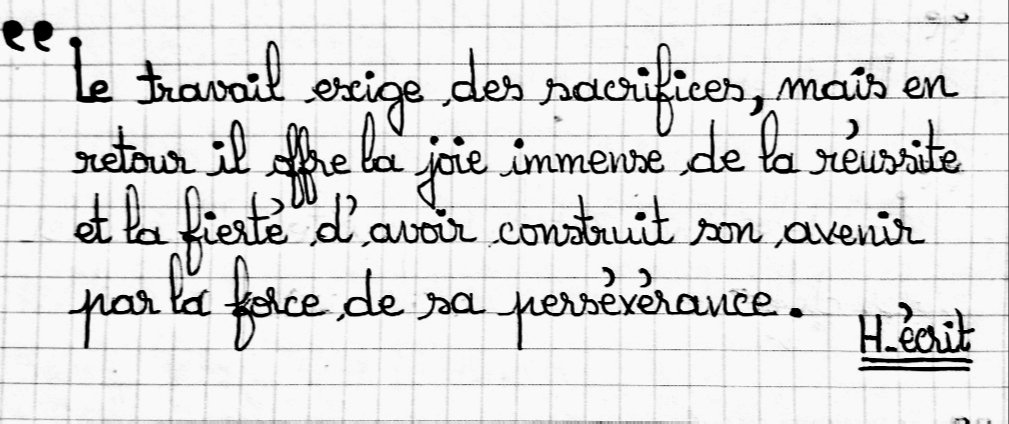 “ Le travail exige des sacrifices, mais en
retour il offre la joie immense de la réussite
et la fierté d'avoir construit son avenir
par la force de sa persévérance.
H_écrit